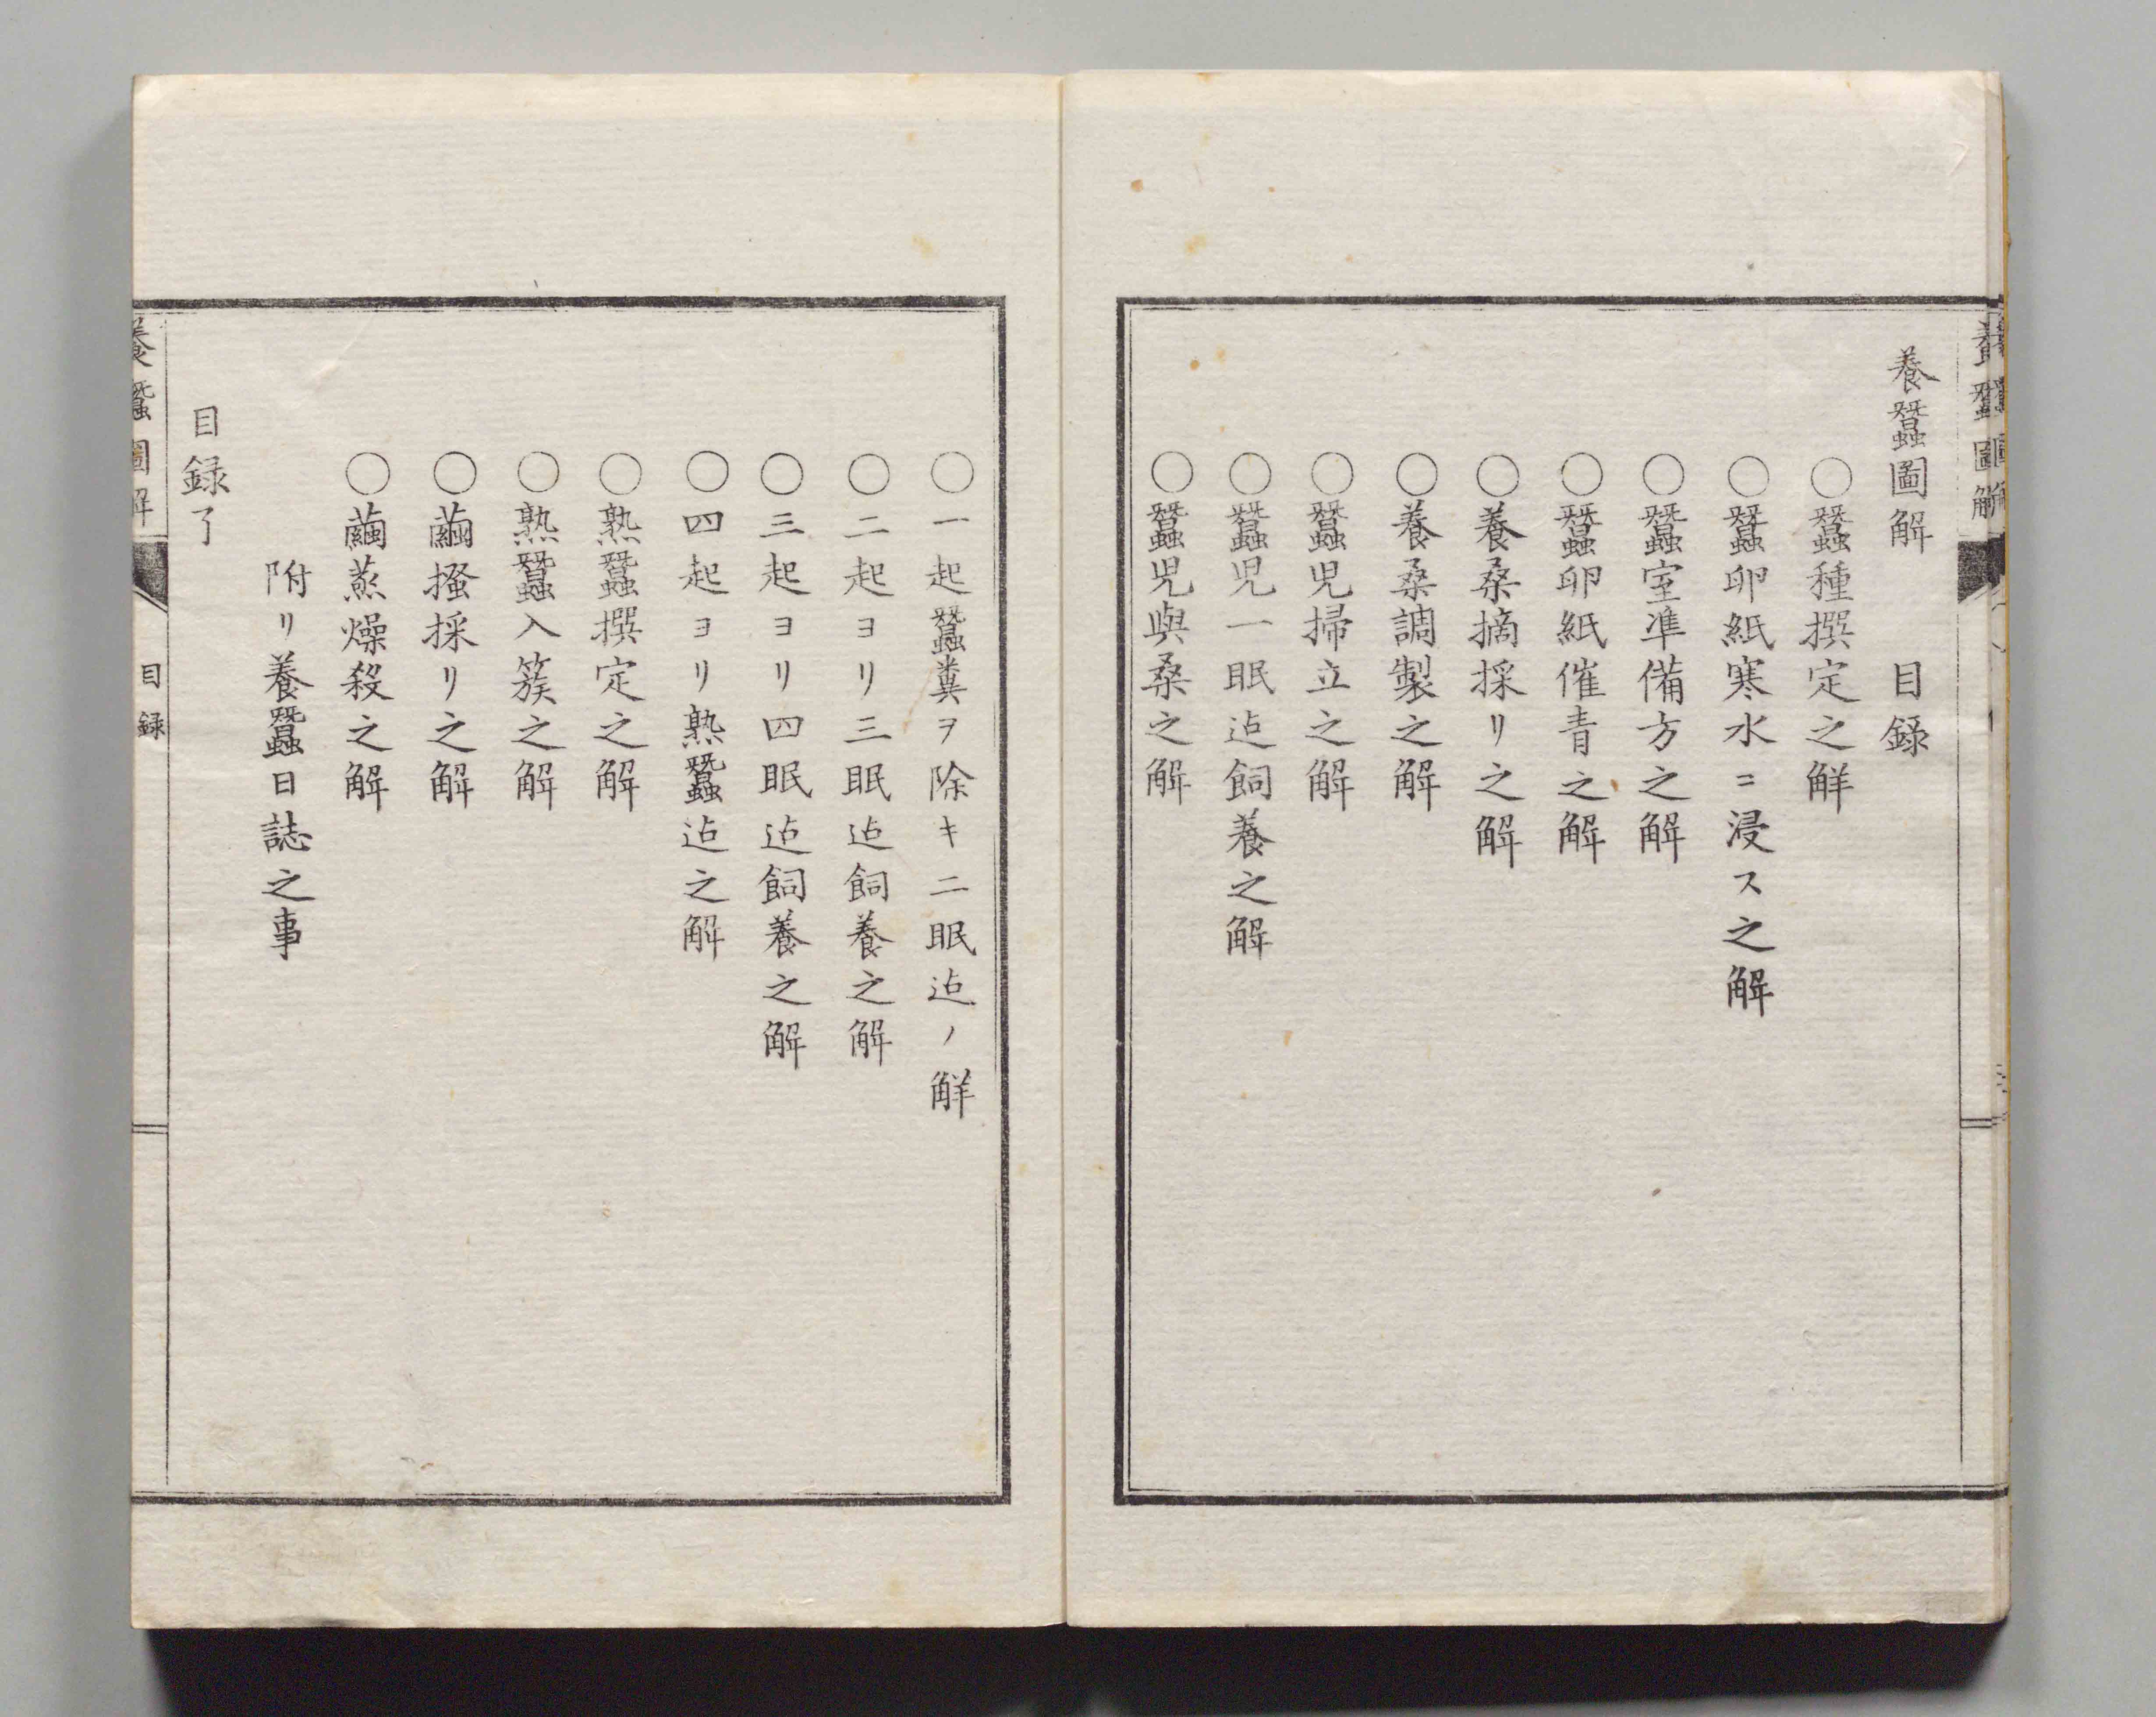 養蠶圖解　目録
〇蠶種撰定之觧
〇蠶卵紙寒水ニ浸ス之解
〇蠶室準備方之解
〇蠶卵紙催青之解
〇養桑摘採リ之解
〇養桑調製之解
〇蠶児掃立之解
〇蠶児一眠迠飼養之解
〇蠶児與桑之解
〇一起蠶糞ヲ除キ二眠迠ノ觧
〇二起ヨリ三眠迠飼養之解
〇三起ヨリ四眠迠飼養之解
〇四起ヨリ熟蠶迠之解
〇熟蠶撰定之解
〇熟蠶入簇之解
〇繭搔採リ之解
〇繭蒸燥殺之解
附リ養蠶日誌之事
目録了
養蠶圖解　目録